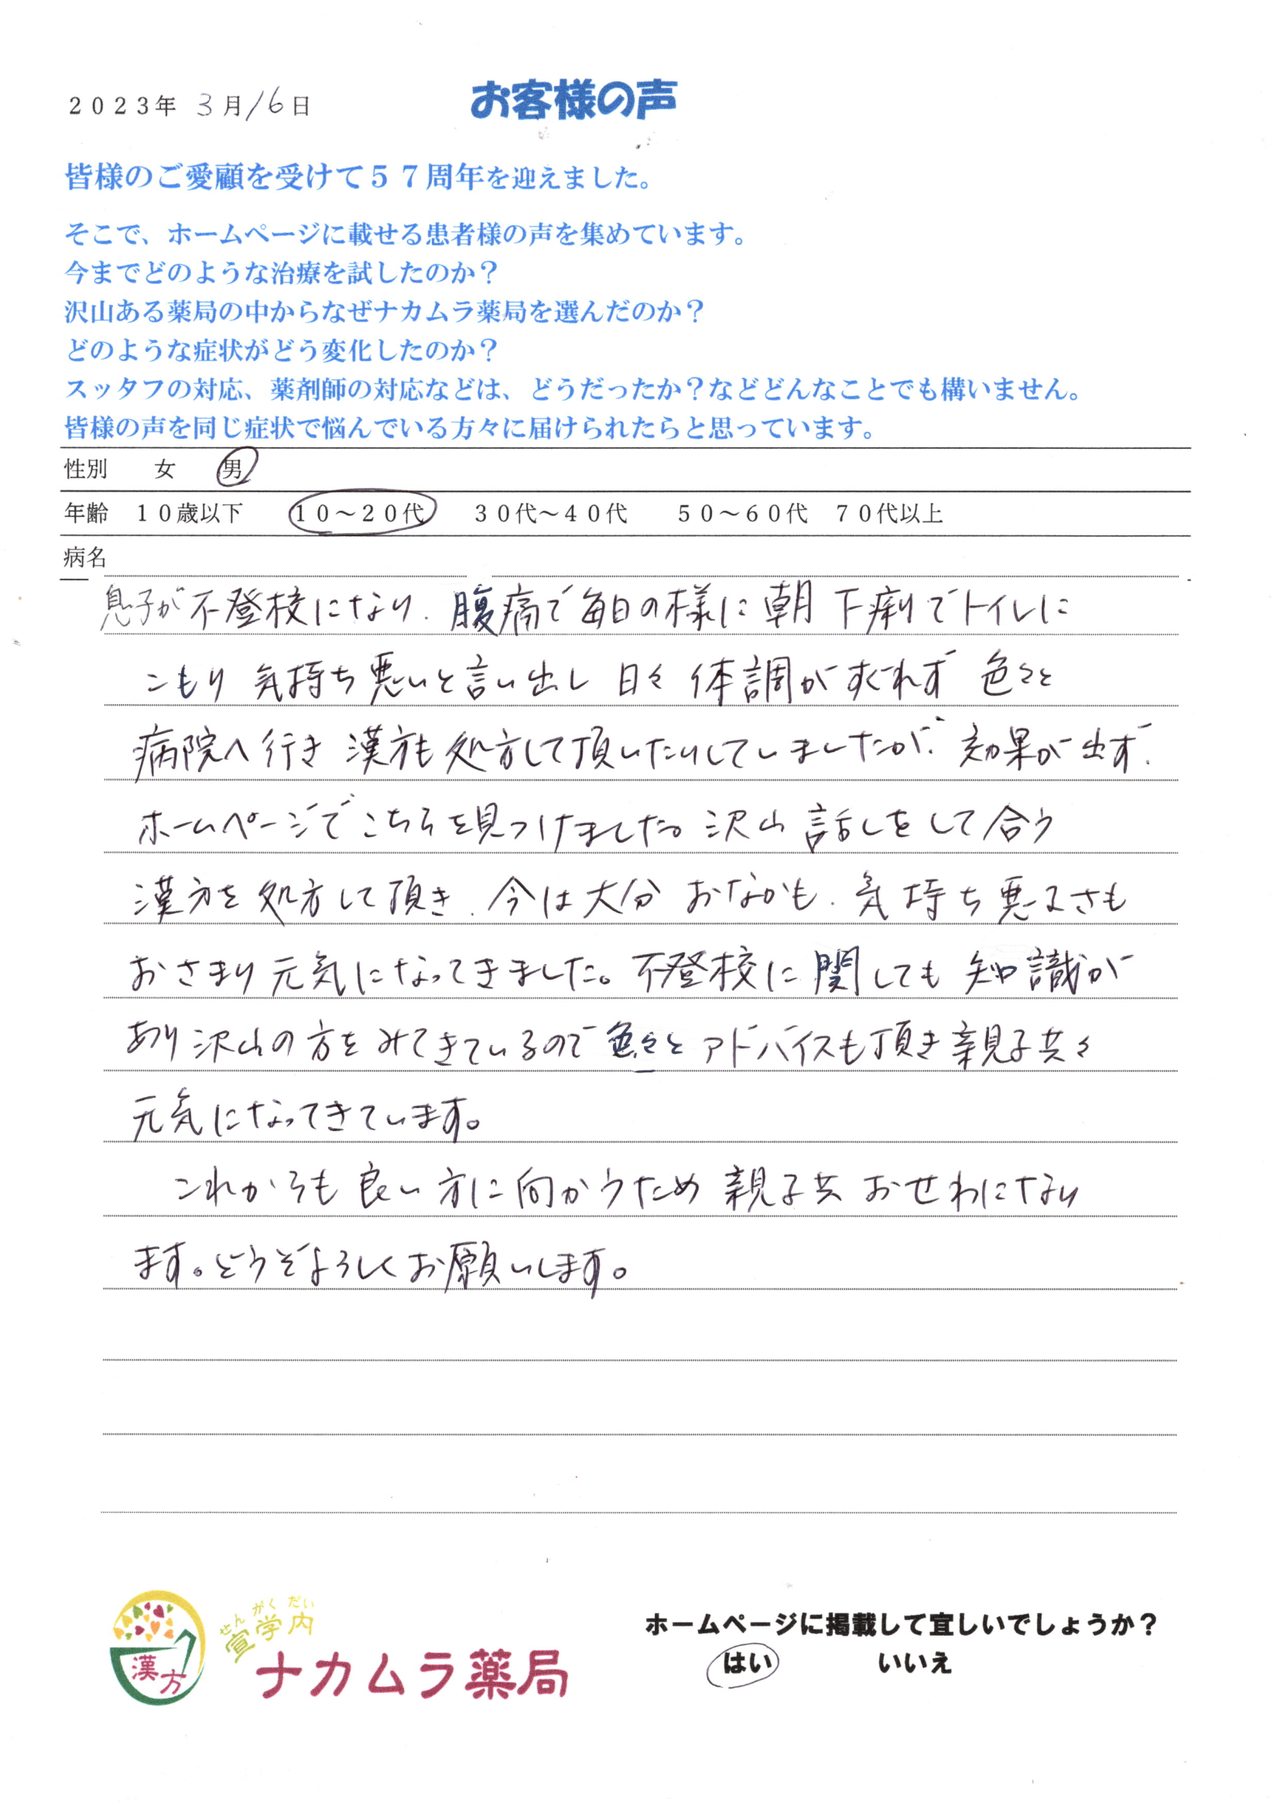 2023年 3月16日
お客様の声
皆様のご愛顧を受けて57周年を迎えました。
そこで、ホームページに載せる患者様の声を集めています。
今までどのような治療を試したのか？
沢山ある薬局の中からなぜナカムラ薬局を選んだのか？
どのような症状がどう変化したのか？
スッタフの対応、薬剤師の対応などは、どうだったか？などどんなことでも構いません。
皆様の声を同じ症状で悩んでいる方々に届けられたらと思っています。
性別 女 男
年齢 10歳以下 10～20代 30代～40代 50～60代 70代以上
病名
息子が不登校になり、腹痛で毎日の様に朝下痢でトイレに
こもり 気持ち悪いと言い出し 日々 体調がすぐれず 色々と
病院へ行き 漢方も処方して頂いたりしていましたが、効果が出ず、
ホームページでこちらを見つけました。沢山 話しをして合う
漢方を処方して頂き、今は大分 おなかも、気持ち悪るさも
おさまり元気になってきました。不登校に関しても知識が
あり沢山の方をみてきているので色々とアドバイスも頂き親子共々
元気になってきています。
これからも良い方に向かうため 親子共 おせわになり
ます。どうぞよろしくお願いします。
せんがくだい
宣学内
漢方
ナカムラ薬局
ホームページに掲載して宜しいでしょうか？
はい いいえ